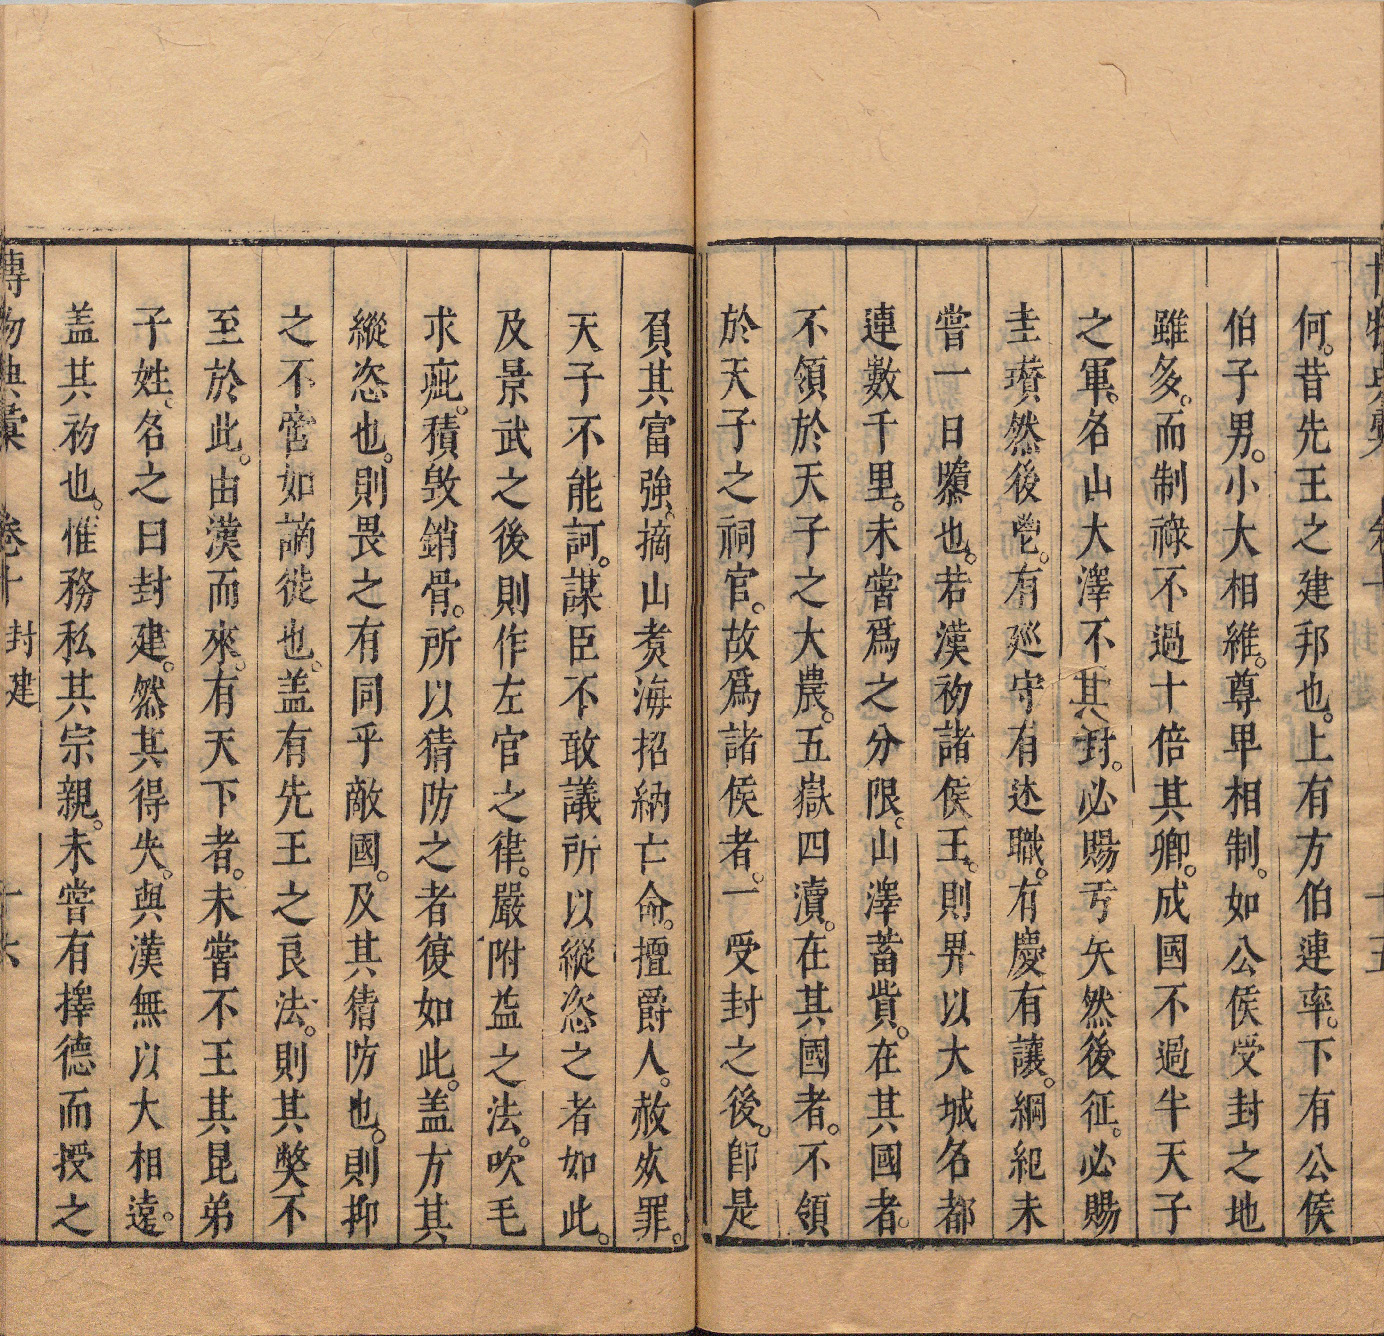 何。昔先王之建邦也。上有方伯連率。下有公侯
伯子男。小大相維。尊卑相制。如公侯受封之地
雖多。而制祿不過十倍其卿。成國不過半天子
之軍。名山大澤不其封。必賜弓矢然後征。必賜
圭瓚然後鬯。有廵守有述職。有慶有讓。綱紀未
嘗一日隳也。若漢初諸侯王。則畀以大城名都
連數千里。未嘗爲之分限。山澤蓄貲。在其國者。
不領於天子之大農。五嶽四瀆。在其國者。不領
於天子之祠官。故爲諸侯者。一受封之後。卽是
負其富強。摘山煑海招納亡命。擅爵人。赦㱦罪。
天子不能訶。謀臣不敢議所以縱恣之者如此。
及景武之後則作左官之律。嚴附益之法。吹毛
求疵。積毀銷骨。所以猜防之者復如此。盖方其
縱恣也。則畏之有同乎敵國。及其猜防也。則抑
之不啻如謫徙也。盖有先王之良法。則其獘不
至於此。由漢而來。有天下者。未嘗不王其昆弟
子姓。名之曰封建。然其得失。與漢無以大相遠。
盖其初也。惟務私其宗親。未嘗有擇德而授之
博物典彙 卷十 封建 十六